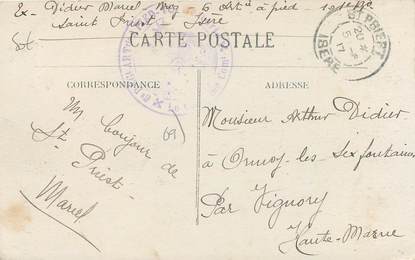 Ex- Didier Marcel
Saint Priest Isère
CARTE POSTALE
ST PRIEST
20 *
5 -
17
ISÈRE
CORRESPONDANCE
ADRESSE
69
Un bonjour de
St Priest
Marcel
Monsieur Arthur Didier
à Ormoy-les-Sexfontaines
Par Vignory
Haute-Marne